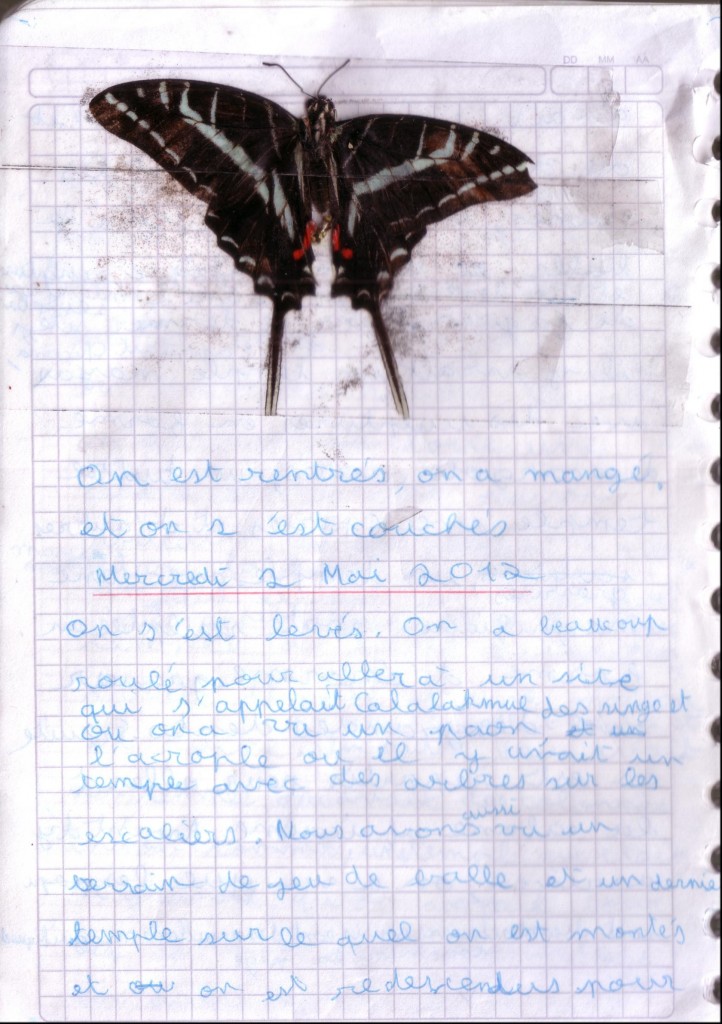 DD MM AA
On est rentrés, on a mangé,
et on s'est couchés
Mercredi 2 Mai 2012
On s'est levés. On a beaucoup
roulé pour aller à un site
qui s'appelait Calalakmul des singe et
ou on a vu un paon, et un
l'acrople ou il y avait un
temple avec des arbres sur les
escaliers. Nous avons aussi vu un
terrain de jeu de balle et un dernie
temple sur le quel on est montés
et ou on est redescendus pour